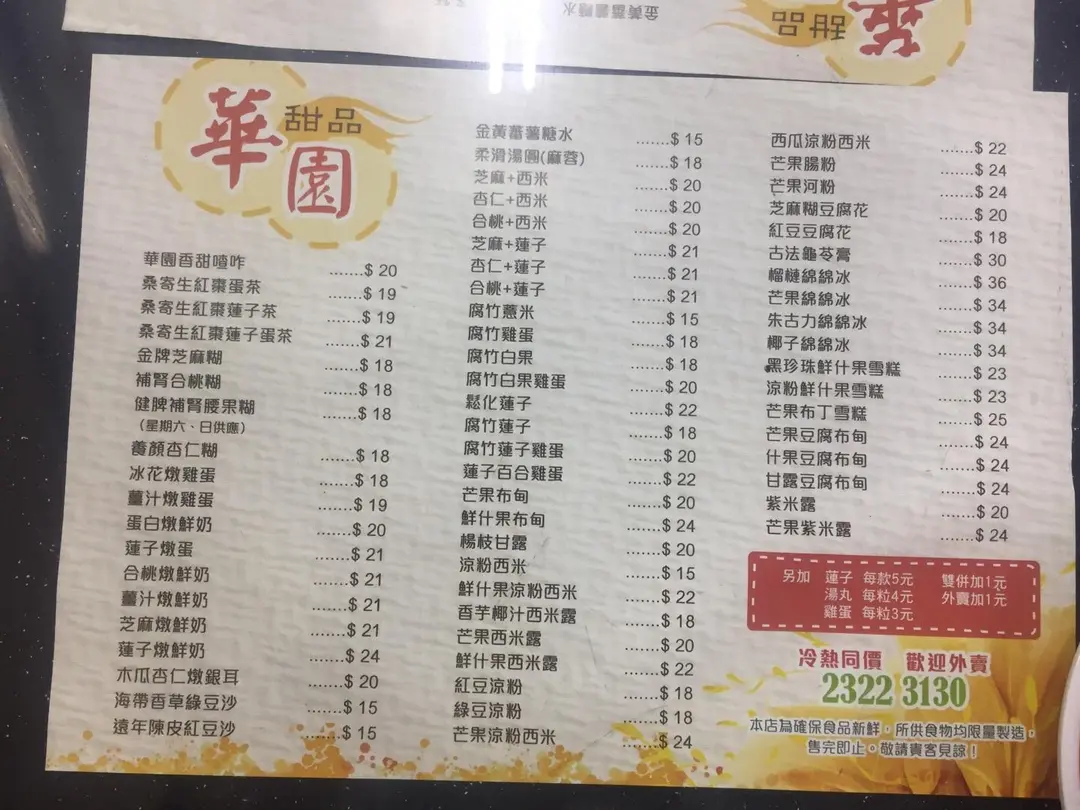 金黃蕃薯糖水
甜品
華
華園
甜品
華園香甜喳咋 ......$ 20
桑寄生紅棗蛋茶 ......$ 19
桑寄生紅棗蓮子茶 ......$ 19
桑寄生紅棗蓮子蛋茶 ......$ 21
金牌芝麻糊 ......$ 18
補腎合桃糊 ......$ 18
健脾補腎腰果糊 ......$ 18
(星期六、日供應)
養顏杏仁糊 ......$ 18
冰花燉雞蛋 ......$ 18
薑汁燉雞蛋 ......$ 19
蛋白燉鮮奶 ......$ 20
蓮子燉蛋 ......$ 21
合桃燉鮮奶 ......$ 21
薑汁燉鮮奶 ......$ 21
芝麻燉鮮奶 ......$ 21
蓮子燉鮮奶 ......$ 24
木瓜杏仁燉銀耳 ......$ 20
海帶香草綠豆沙 ......$ 15
遠年陳皮紅豆沙 ......$ 15
金黃蕃薯糖水 ......$ 15
柔滑湯圓(麻蓉) ......$ 18
芝麻+西米 ......$ 20
杏仁+西米 ......$ 20
合桃+西米 ......$ 20
芝麻+蓮子 ......$ 21
杏仁+蓮子 ......$ 21
合桃+蓮子 ......$ 21
腐竹薏米 ......$ 15
腐竹雞蛋 ......$ 18
腐竹白果 ......$ 18
腐竹白果雞蛋 ......$ 20
鬆化蓮子 ......$ 22
腐竹蓮子 ......$ 18
腐竹蓮子雞蛋 ......$ 20
蓮子百合雞蛋 ......$ 22
芒果布甸 ......$ 20
鮮什果布甸 ......$ 24
楊枝甘露 ......$ 20
涼粉西米 ......$ 15
鮮什果涼粉西米 ......$ 22
香芋椰汁西米露 ......$ 18
芒果西米露 ......$ 20
鮮什果西米露 ......$ 22
紅豆涼粉 ......$ 18
綠豆涼粉 ......$ 18
芒果涼粉西米 ......$ 24
西瓜涼粉西米 ......$ 22
芒果腸粉 ......$ 24
芒果河粉 ......$ 24
芝麻糊豆腐花 ......$ 20
紅豆豆腐花 ......$ 18
古法龜苓膏 ......$ 30
榴槤綿綿冰 ......$ 36
芒果綿綿冰 ......$ 34
朱古力綿綿冰 ......$ 34
椰子綿綿冰 ......$ 34
黑珍珠鮮什果雪糕 ......$ 23
涼粉鮮什果雪糕 ......$ 23
芒果布丁雪糕 ......$ 25
芒果豆腐布甸 ......$ 24
什果豆腐布甸 ......$ 24
甘露豆腐布甸 ......$ 24
紫米露 ......$ 20
芒果紫米露 ......$ 24
另加 蓮子 每款5元 雙併加1元
湯丸 每粒4元 外賣加1元
雞蛋 每粒3元
冷熱同價 歡迎外賣
2322 3130
本店為確保食品新鮮，所供食物均限量製造，
售完即止。敬請貴客見諒！